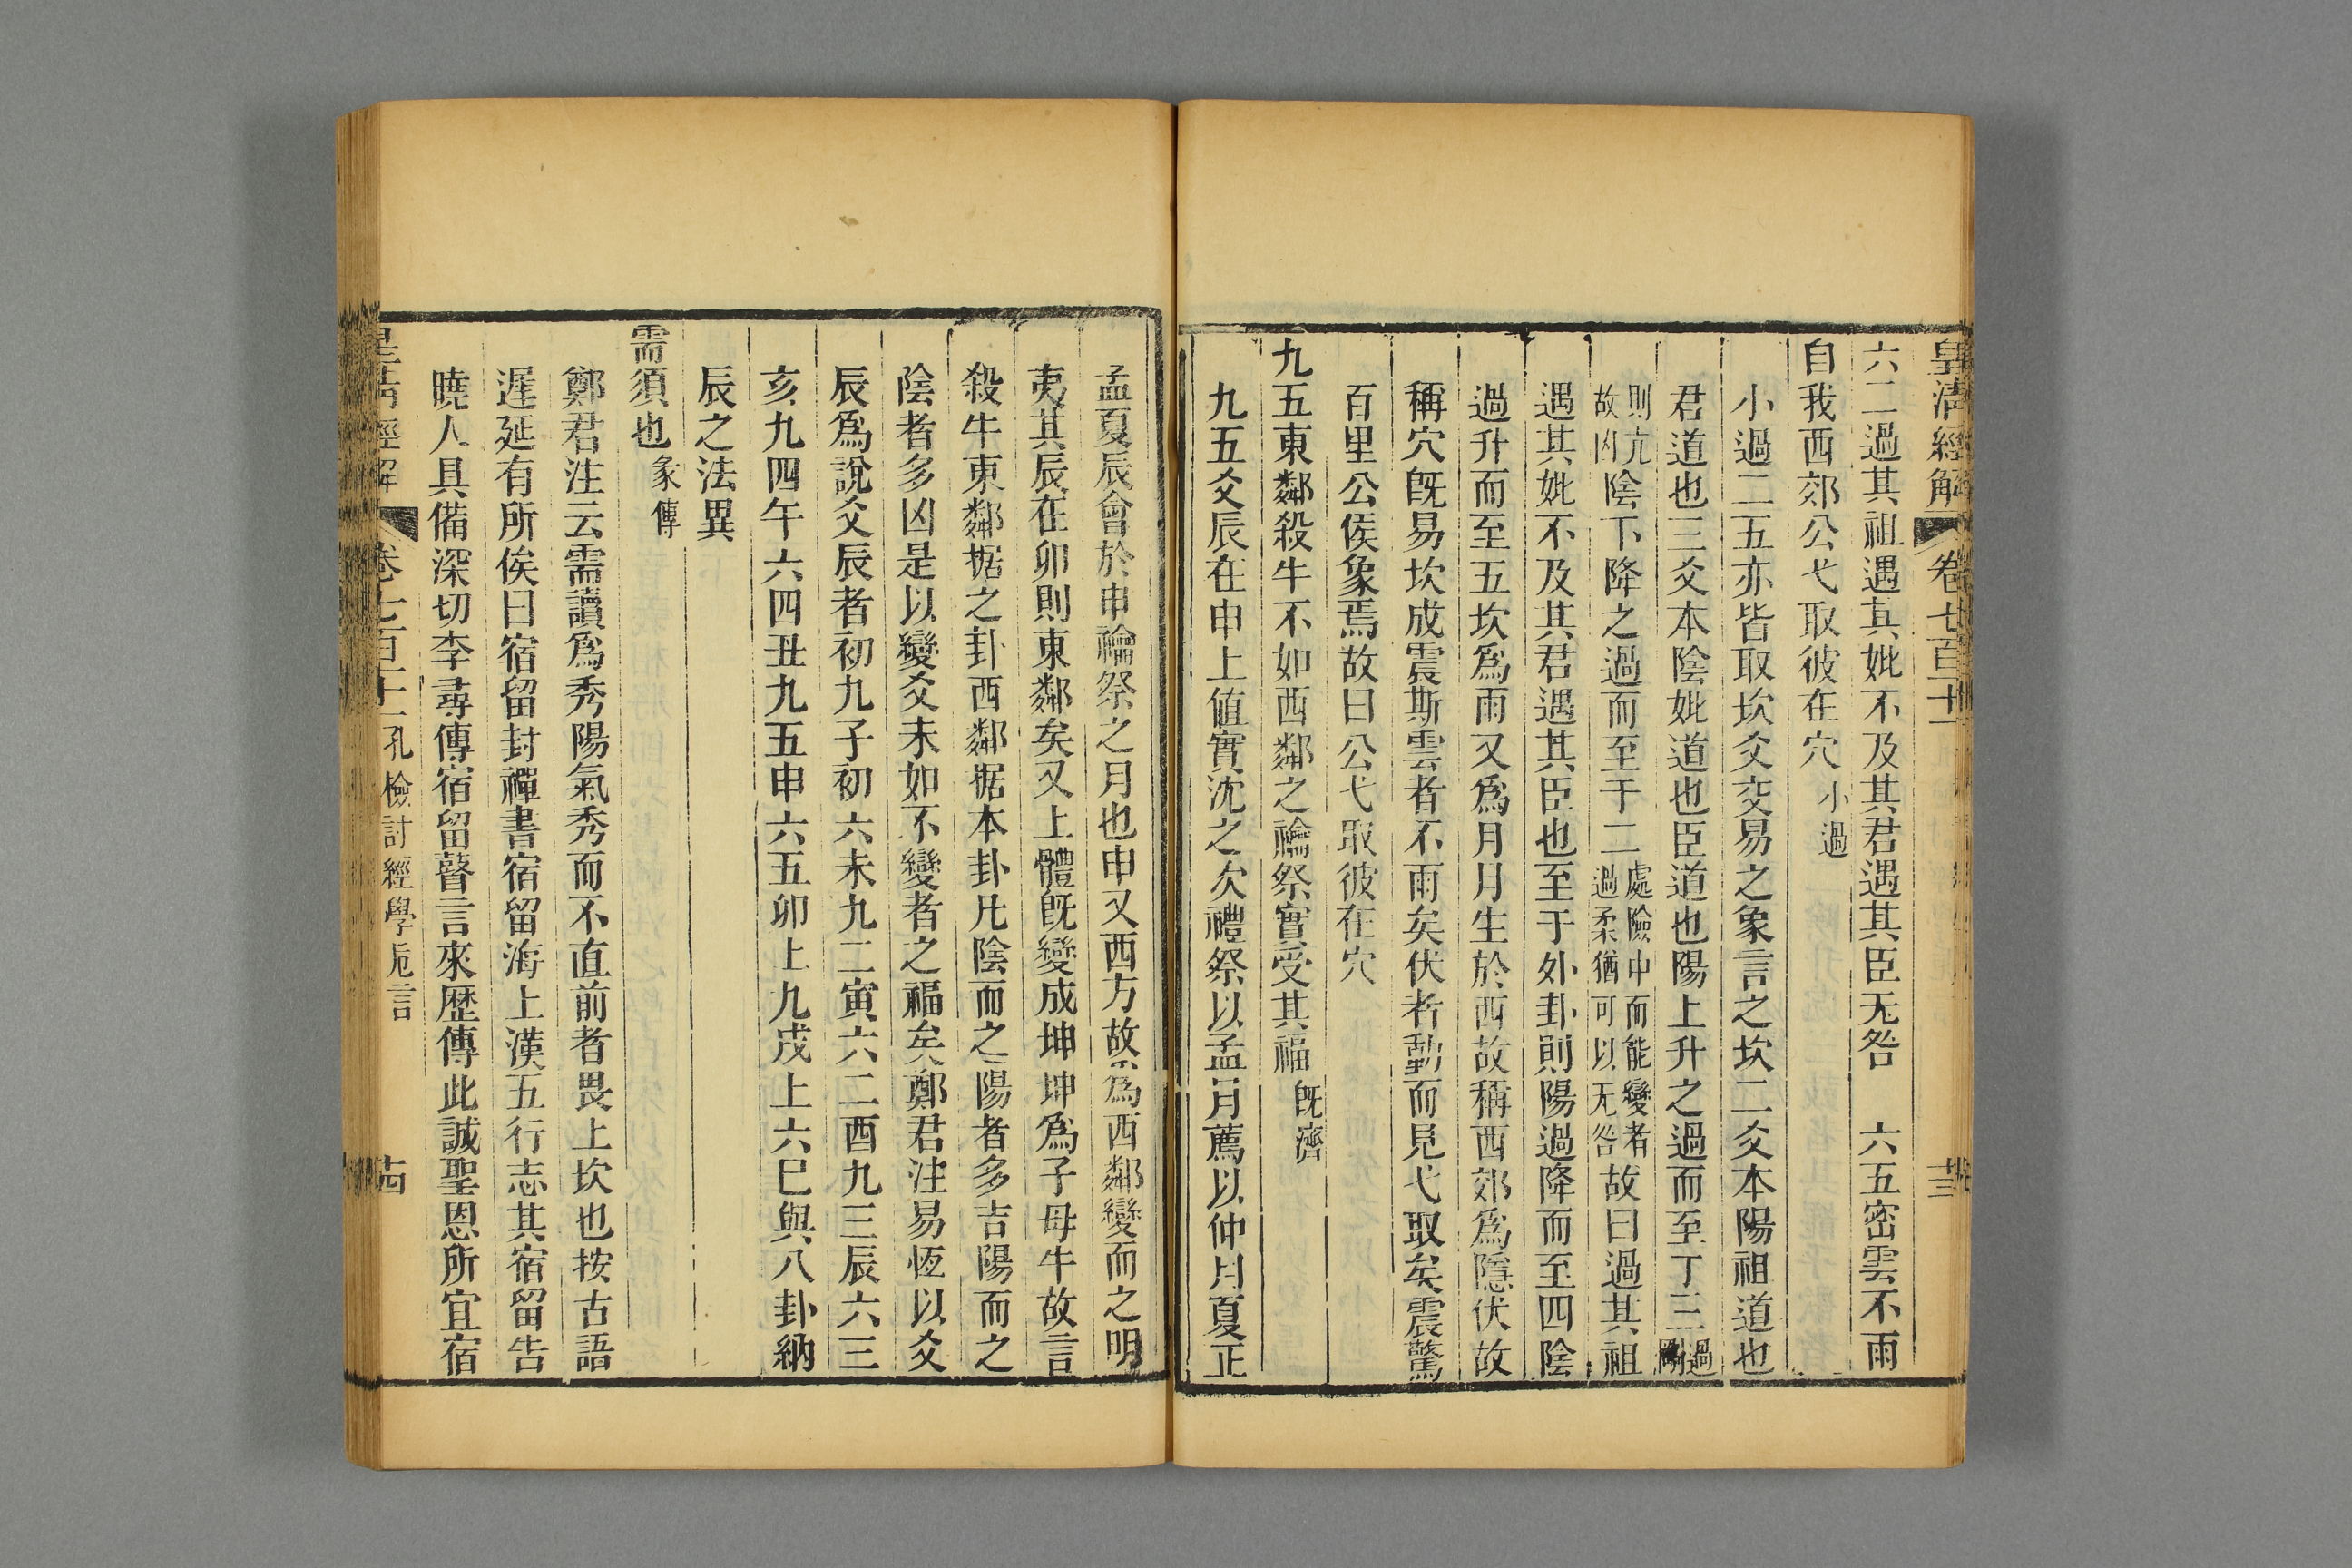 皇清經解 卷七百十一 十三
六二過其祖遇其妣不及其君遇其臣无咎 六五密雲不雨
自我西郊公弋取彼在穴小過
小過二五亦皆取坎爻變易之象言之坎二爻本陽祖道也
君道也三爻本陰妣道也臣道也陽上升之過而至丁三過剛
則亢故凶陰下降之過而至于二處險中而能變者過柔猶可以无咎故曰過其祖
遇其妣不及其君遇其臣也至于外卦則陽過降而至四陰
過升而至五坎爲雨又爲月月生於西故稱西郊爲隱伏故
稱穴既易坎成震斯雲者不雨矣伏者動而見弋取矣震驚
百里公侯象焉故曰公弋取彼在穴
九五東鄰殺牛不如西鄰之禴祭實受其福既濟
九五爻辰在申上值實沈之次禮祭以孟月薦以仲月夏正
孟夏辰會於申禴祭之月也申又西方故爲西鄰變而之明
夷其辰在卯則東鄰矣又上體既變成坤坤爲子母牛故言
殺牛東鄰据之卦西鄰据本卦凡陰而之陽者多吉陽而之
陰者多凶是以變爻未如不變者之福矣鄭君注易恆以爻
辰爲說爻辰者初九子初六未九二寅六二酉九三辰六三
亥九四午六四丑九五申六五卯上九戌上六巳與八卦納
辰之法異
需須也彖傳
鄭君注云需讀爲秀陽氣秀而不直前者畏上坎也按古語
遲延有所俟曰宿留封禪書宿留海上漢五行志其宿留告
曉人具備深切李尋傳宿留瞽言來歷傳此誠聖恩所宜宿
皇清經解 卷七百十一 孔檢討經學卮言 十四